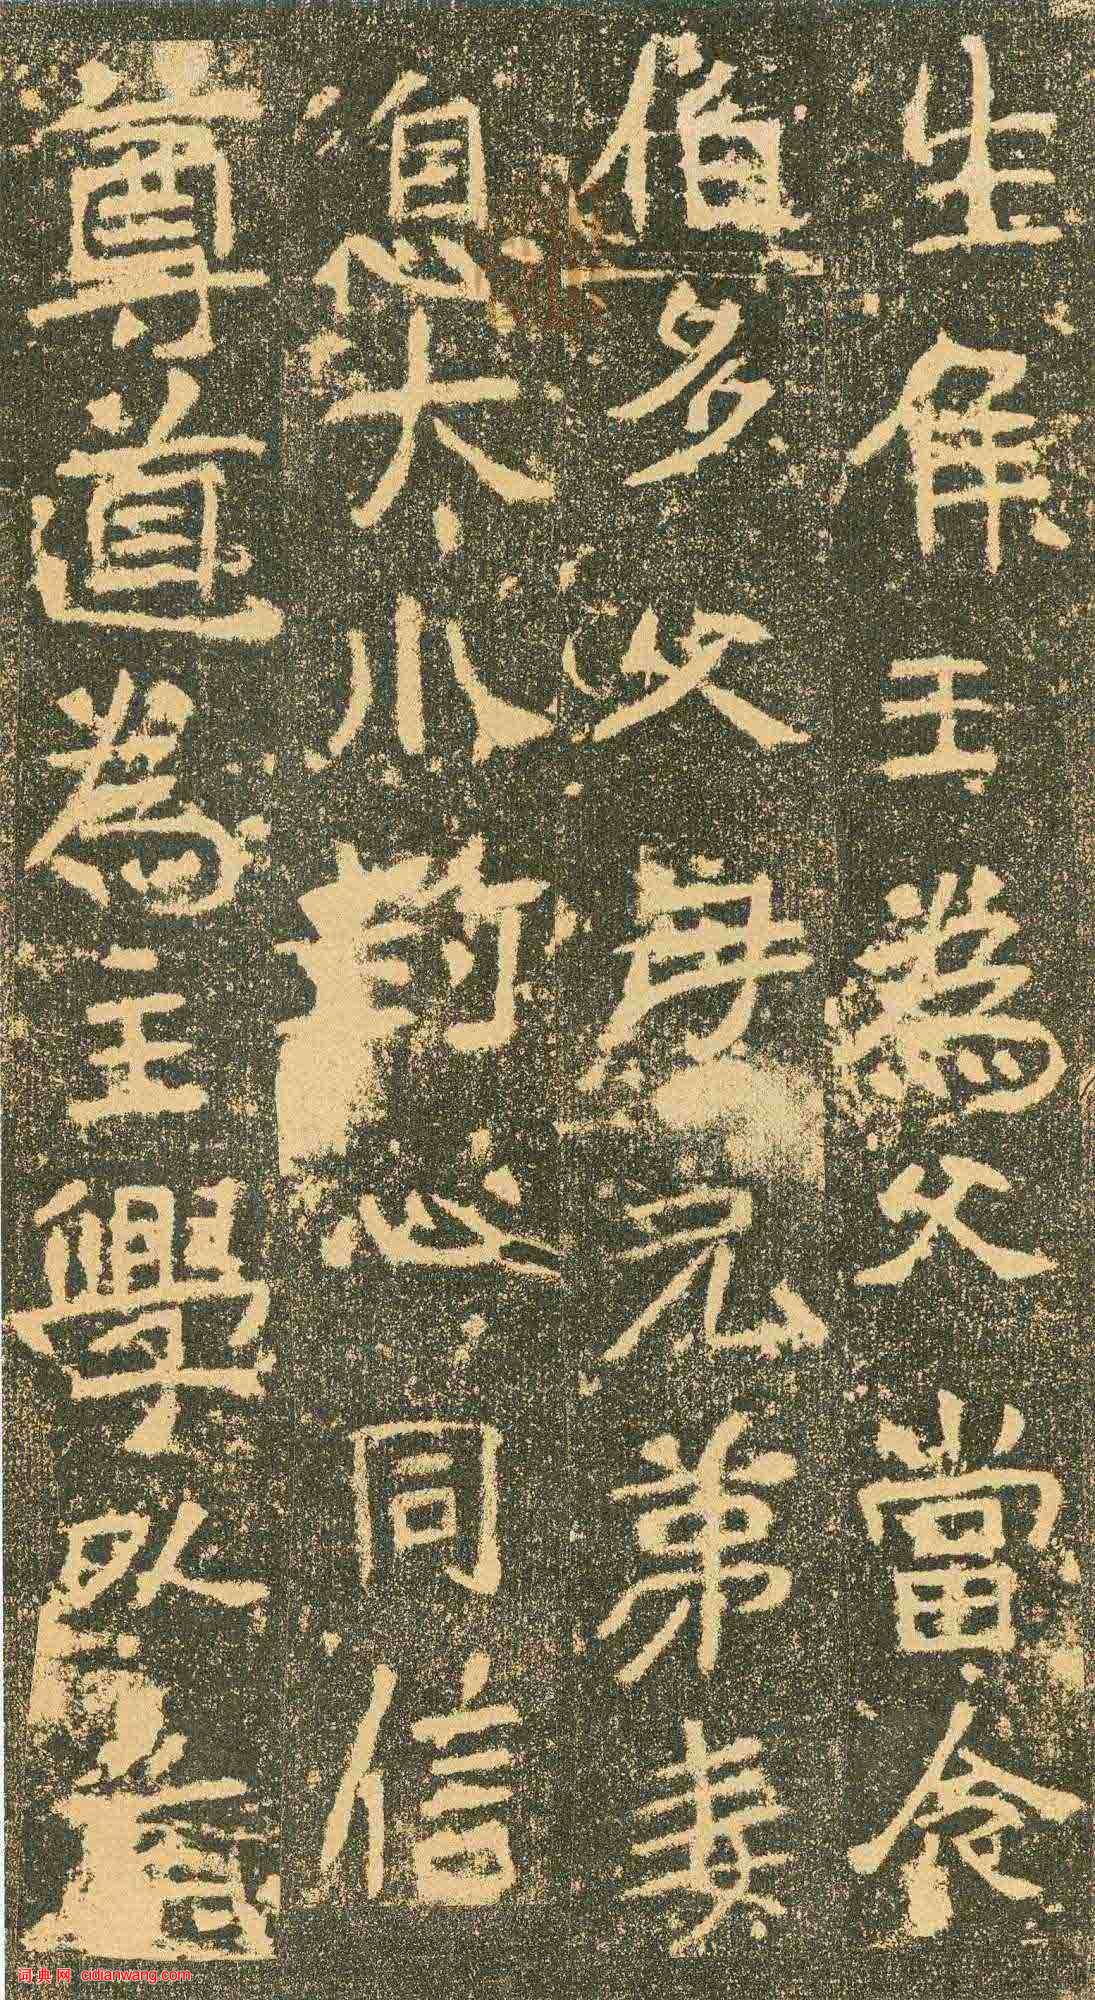 生 侯王 為父 當念
伯多 父母 兄弟 妻
息大小 對心 同信
尊道 為主 學以
词典网 cidianwang.com